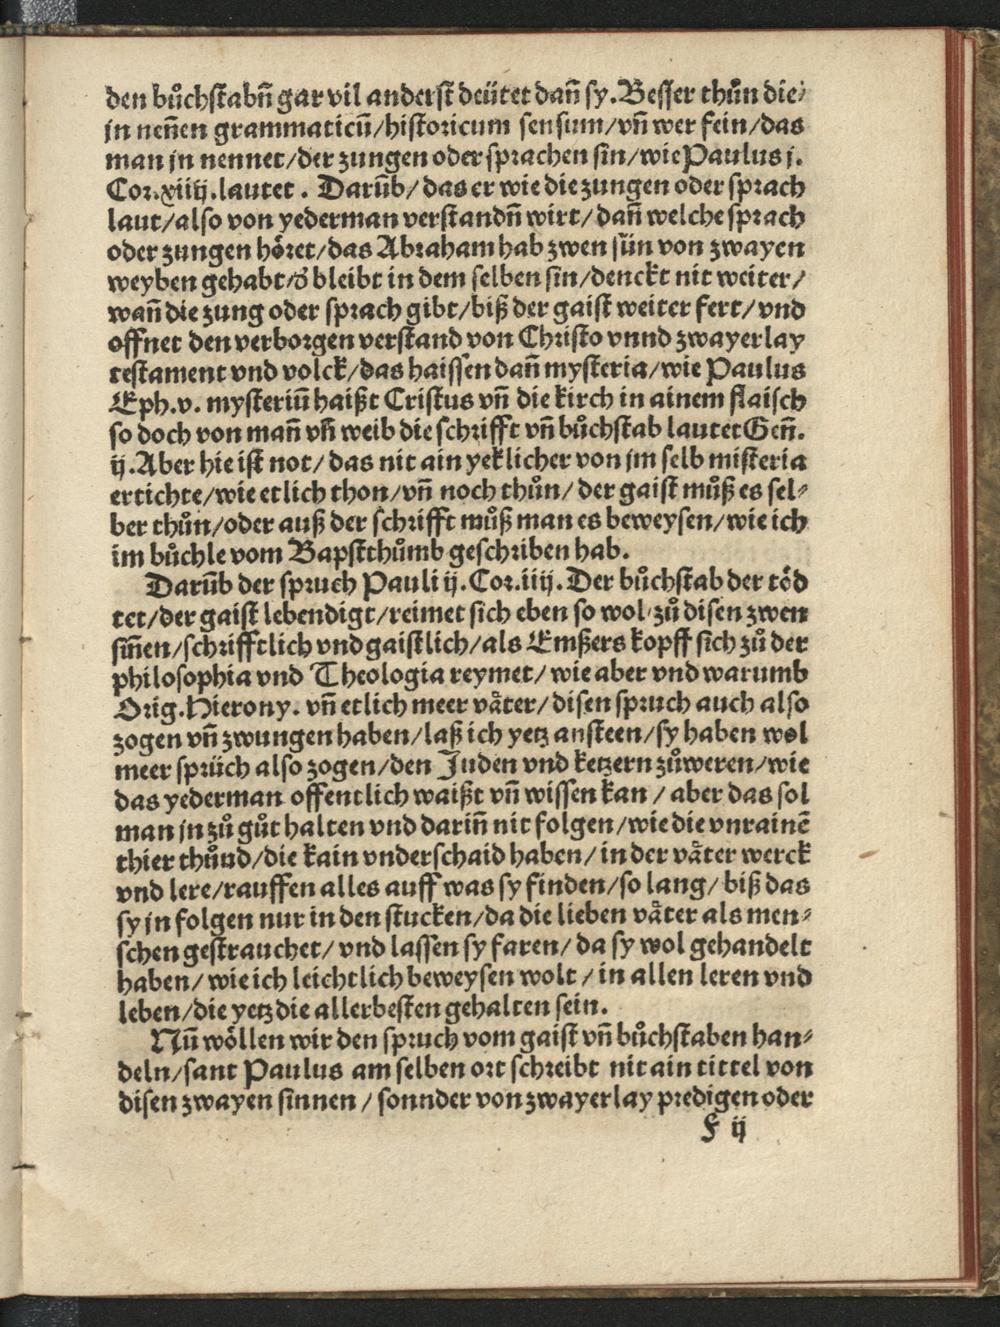 den bůchstabñ gar vil anderst deütet dañ sy. Besser thůn die/
jn neñen grammaticũ/historicum sensum/vñ wer fein/das
man jn nennet/der zungen oder sprachen sin/wie Paulus j.
Cor. xiiij. lautet. Darũb/das er wie die zungen oder sprach
laut/also von yederman verstandñ wirt/dañ welche sprach
oder zungen hőret/das Abraham hab zwen sün von zwayen
weyben gehabt/d̄ bleibt in dem selben sin/denckt nit weiter/
wañ die zung oder sprach gibt/biß der gaist weiter fert/vnd
offnet den verborgen verstand von Christo vnnd zwayerlay
testament vnd volck/das haissen dañ mysteria/wie Paulus
Eph. v. mysteriũ haißt Cristus vñ die kirch in ainem flaisch
so doch von mañ vñ weib die schrifft vñ bůchstab lautet Geñ.
ij. Aber hie ist not/das nit ain yeklicher von jm selb misteria
ertichte/wie etlich thon/vñ noch thůn/der gaist můß es sel⸗
ber thůn/oder auß der schrifft můß man es beweysen/wie ich
im bůchle vom Bapstthůmb geschriben hab.
Darũb der spruch Pauli ij. Cor. iij. Der bůchstab der tőd
tet/der gaist lebendigt/reimet sich eben so wol zů disen zwen
siñen/schrifftlich vnd gaistlich/als Emßers kopff sich zů der
philosophia vnd Theologia reymet/wie aber vnd warumb
Orig. Hierony. vñ etlich meer vaͤter/disen spruch auch also
zogen vñ zwungen haben/laß ich yetz ansteen/sy haben wol
meer sprüch also zogen/den Juden vnd ketzern zůweren/wie
das yederman offentlich waißt vñ wissen kan/aber das sol
man jn zů gůt halten vnd dariñ nit folgen/wie die vnrainẽ
thier thůnd/die kain vnderschaid haben/in der vaͤter werck
vnd lere/rauffen alles auff was sy finden/so lang/biß das
sy jn folgen nur in den stucken/da die lieben vaͤter als men⸗
schen gestrauchet/vnd lassen sy faren/da sy wol gehandelt
haben/wie ich leichtlich beweysen wolt/in allen leren vnd
leben/die yetz die allerbesten gehalten sein.
Nũ wőllen wir den spruch vom gaist vñ bůchstaben han⸗
deln/sant Paulus am selben ort schreibt nit ain tittel von
disen zwayen sinnen/sonnder von zwayerlay predigen oder
F ij